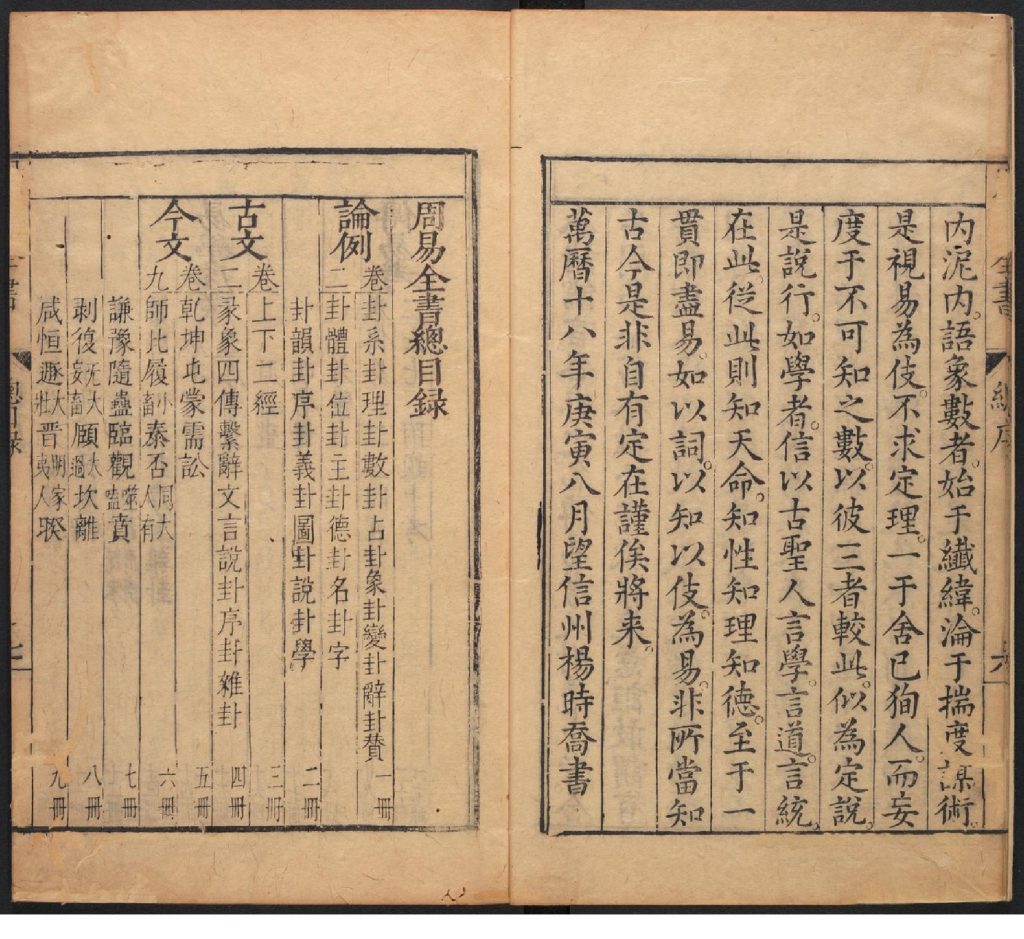 内泥内。語象數者。始于纖緯。淪于揣度謀術。
是視易為伎。不求定理。一于舍已狥人。而妄
度于不可知之數。以彼三者較此。似為定說。
是說行。如學者。信以古聖人言學。言道。言統。
在此。從此則知天命。知性知理知德。至于一
貫即盡易。如以詞。以知以伎。為易。非所當知
古今是非自有定在謹俟將来。
萬曆十八年庚寅八月望信州楊時喬書
周易全書總目録
論例二卷 卦系卦理卦數卦占卦象卦變卦辭卦賛 一冊
卦體卦位卦主卦德卦名卦字
卦韻卦序卦義卦圖卦說卦學 二冊
古文二卷 上下二經 三冊
彖象四傳繫辭文言說卦序卦雜卦 四冊
今文九卷 乾坤屯蒙需訟 五冊
師比小畜履泰否同人大有 六冊
謙豫隨蠱臨觀噬嗑賁 七冊
剥復无妄大畜頤大過坎離 八冊
咸恒遯大壯晉明夷家人睽 九冊
全書
總序
六
總目録
七